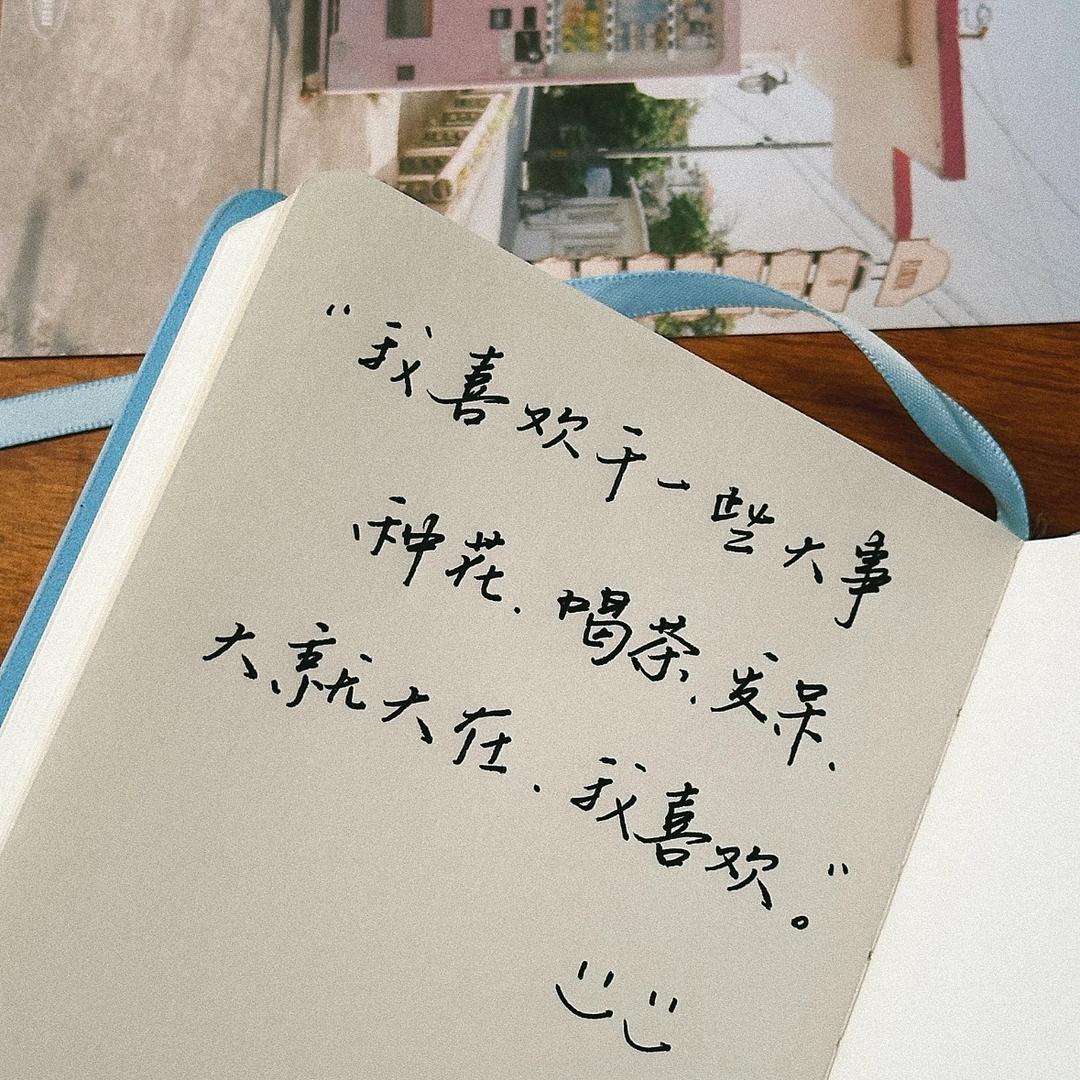 “我喜欢干一些大事
种花、喝茶、发呆、
大就大在、我喜欢。”